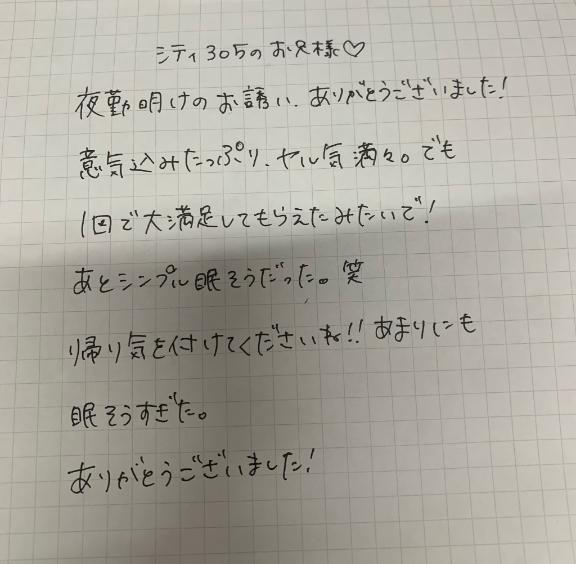 シティ305のお兄様♡
夜勤明けのお誘い、ありがとうございました!
意気込みたっぷり、ヤル気満々。でも
1回で大満足してもらえたみたいで!
あとシンプル眠そうだった。笑
帰り気を付けてくださいね!!あまりにも
眠そうすぎた。
ありがとうございました!